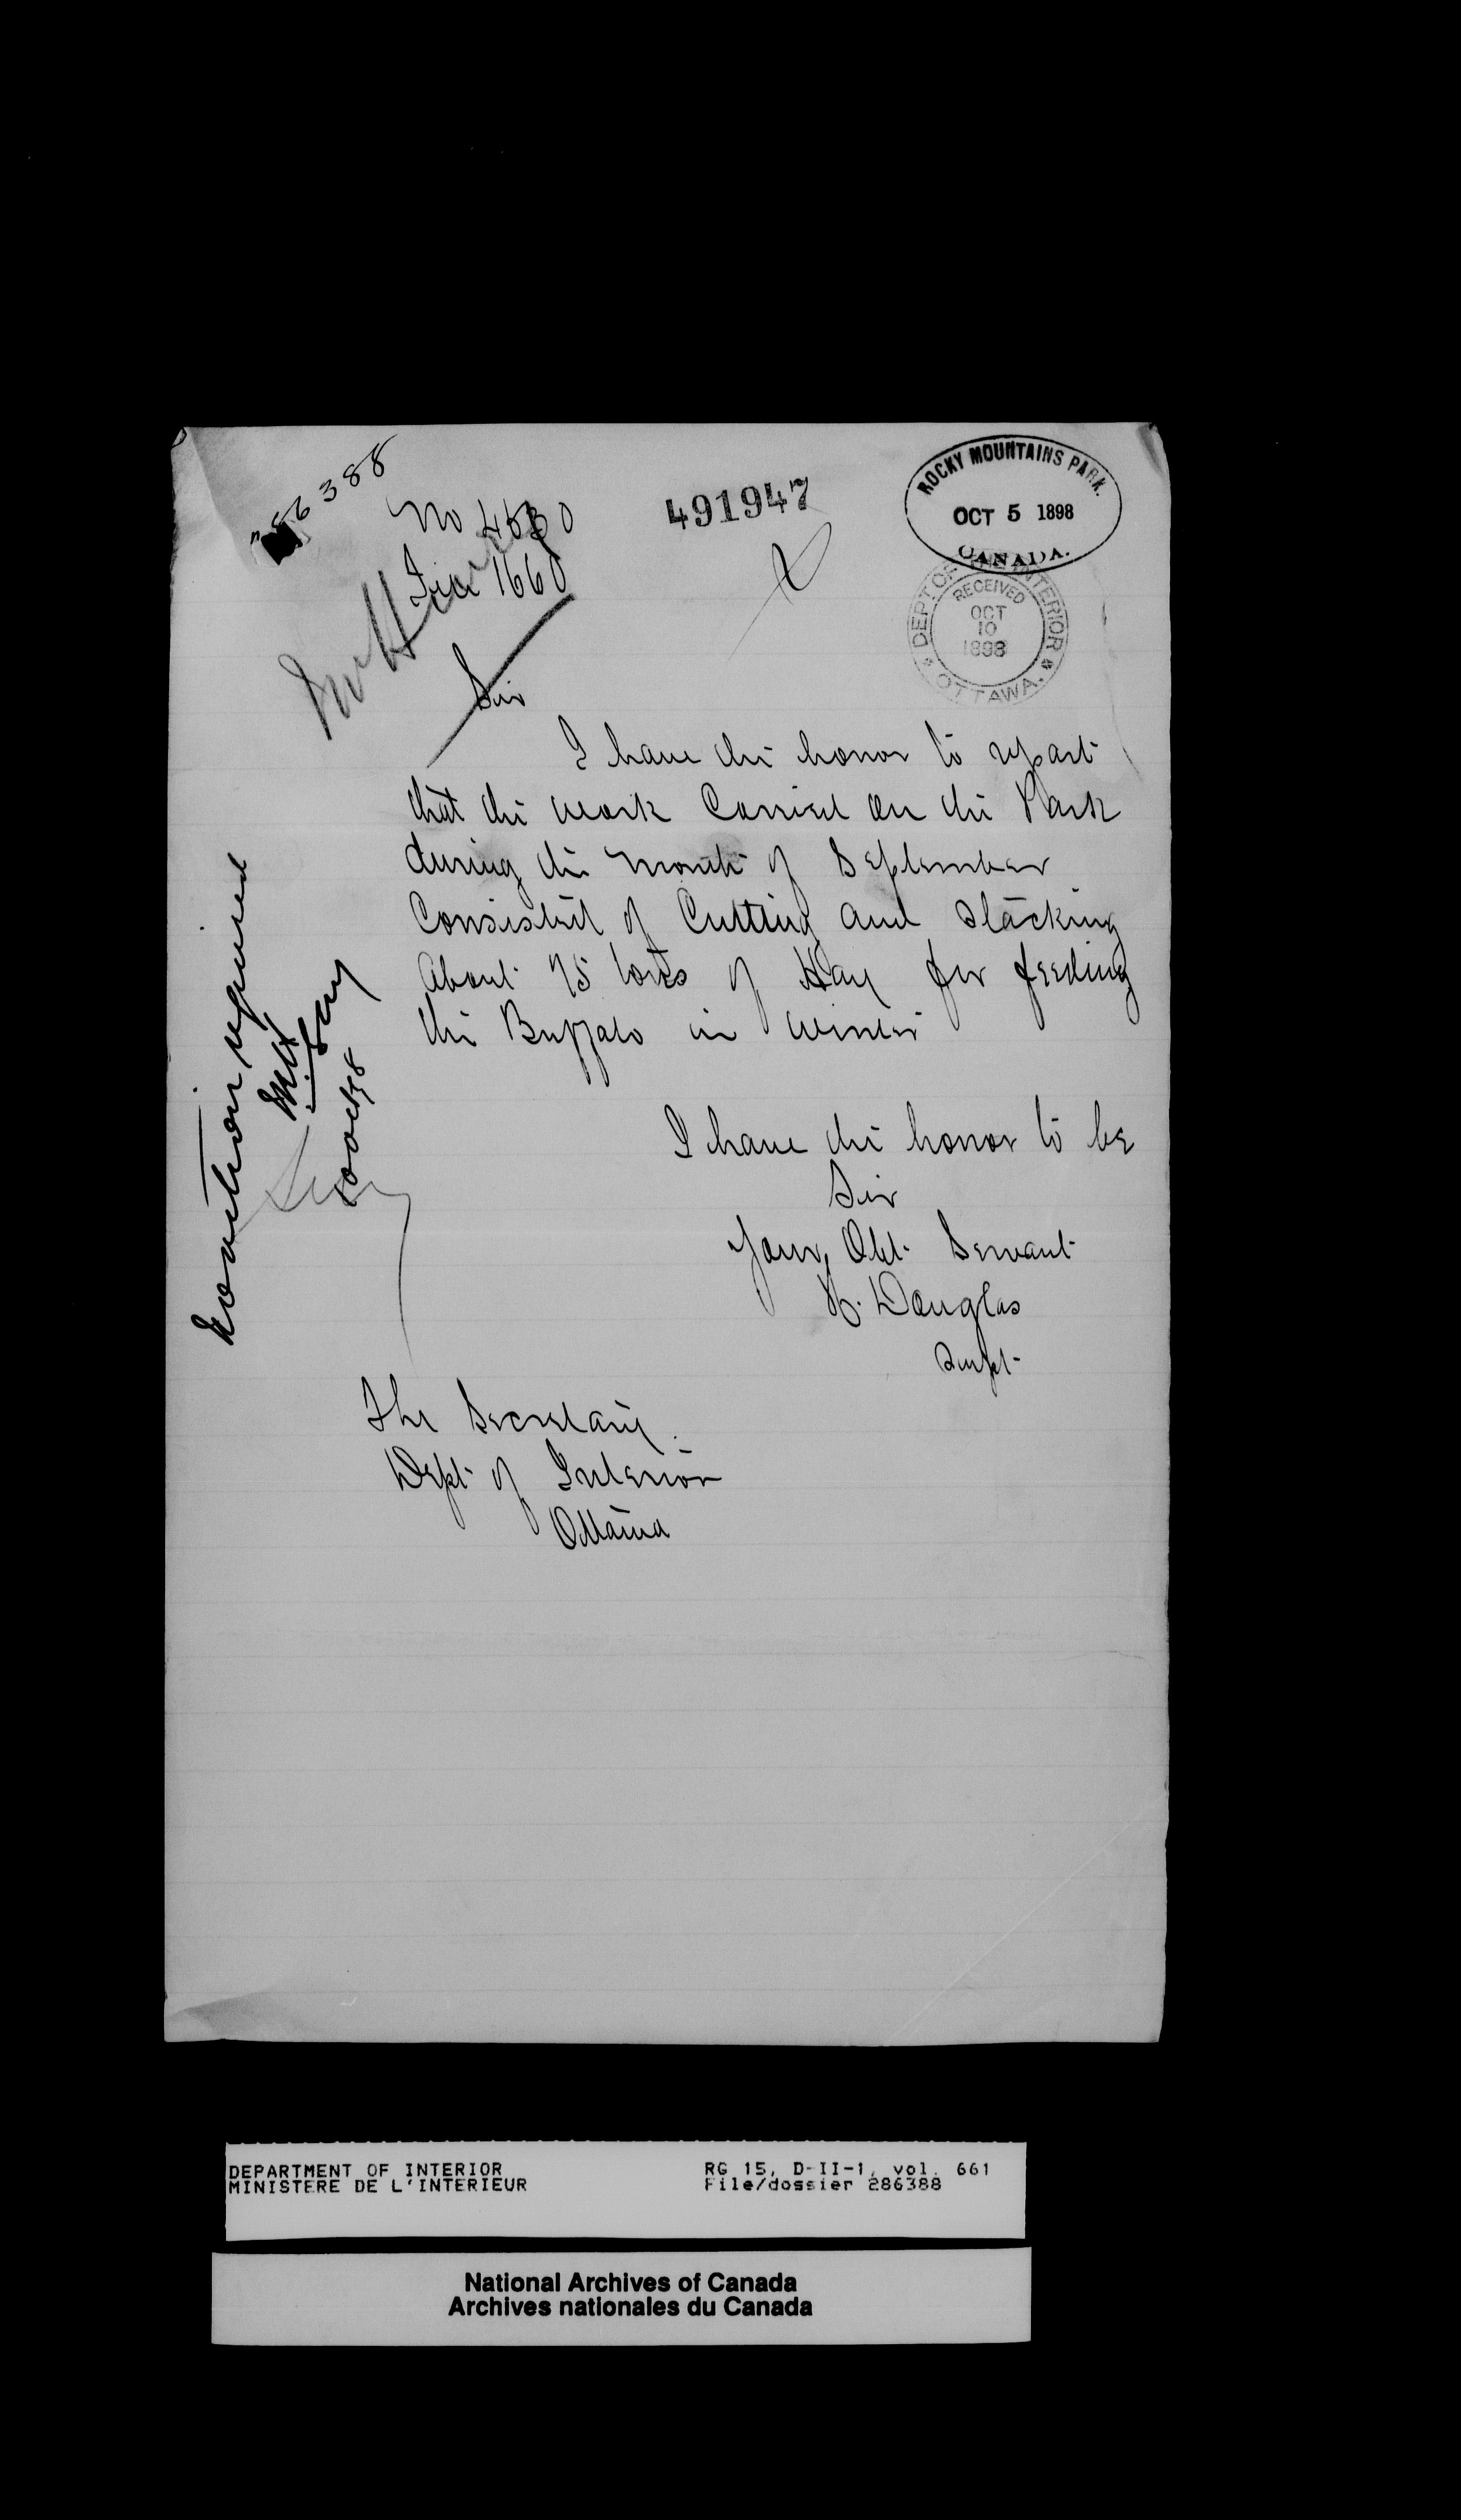 286388
No 4530
File 1660
491947
ROCKY MOUNTAINS PARK.
OCT 5 1898
CANADA.
DEPT. OF THE INTERIOR
RECEIVED
OCT
10
1898
OTTAWA.
Sir
I have the honor to report
that the work Carried on the Park
during the month of September
Consisted of Cutting and stacking
About 75 tons of Hay for feeding
the Buffalo in winter
I have the honor to be
Sir
Your Obt Servant
H. Douglas
Supt
The Secretary
Dept of Interior
Ottawa
No action required
DEPARTMENT OF INTERIOR
MINISTERE DE L'INTERIEUR
RG 15, D-II-1, vol. 661
File/dossier 286388
National Archives of Canada
Archives nationales du Canada